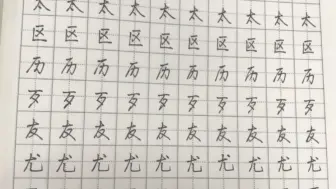 太太太太太太太太太
区区区区区区区区区
历历历历历历历历历
歹歹歹歹歹歹歹歹歹
友友友友友友友友友
尤尤尤尤尤尤尤尤尤